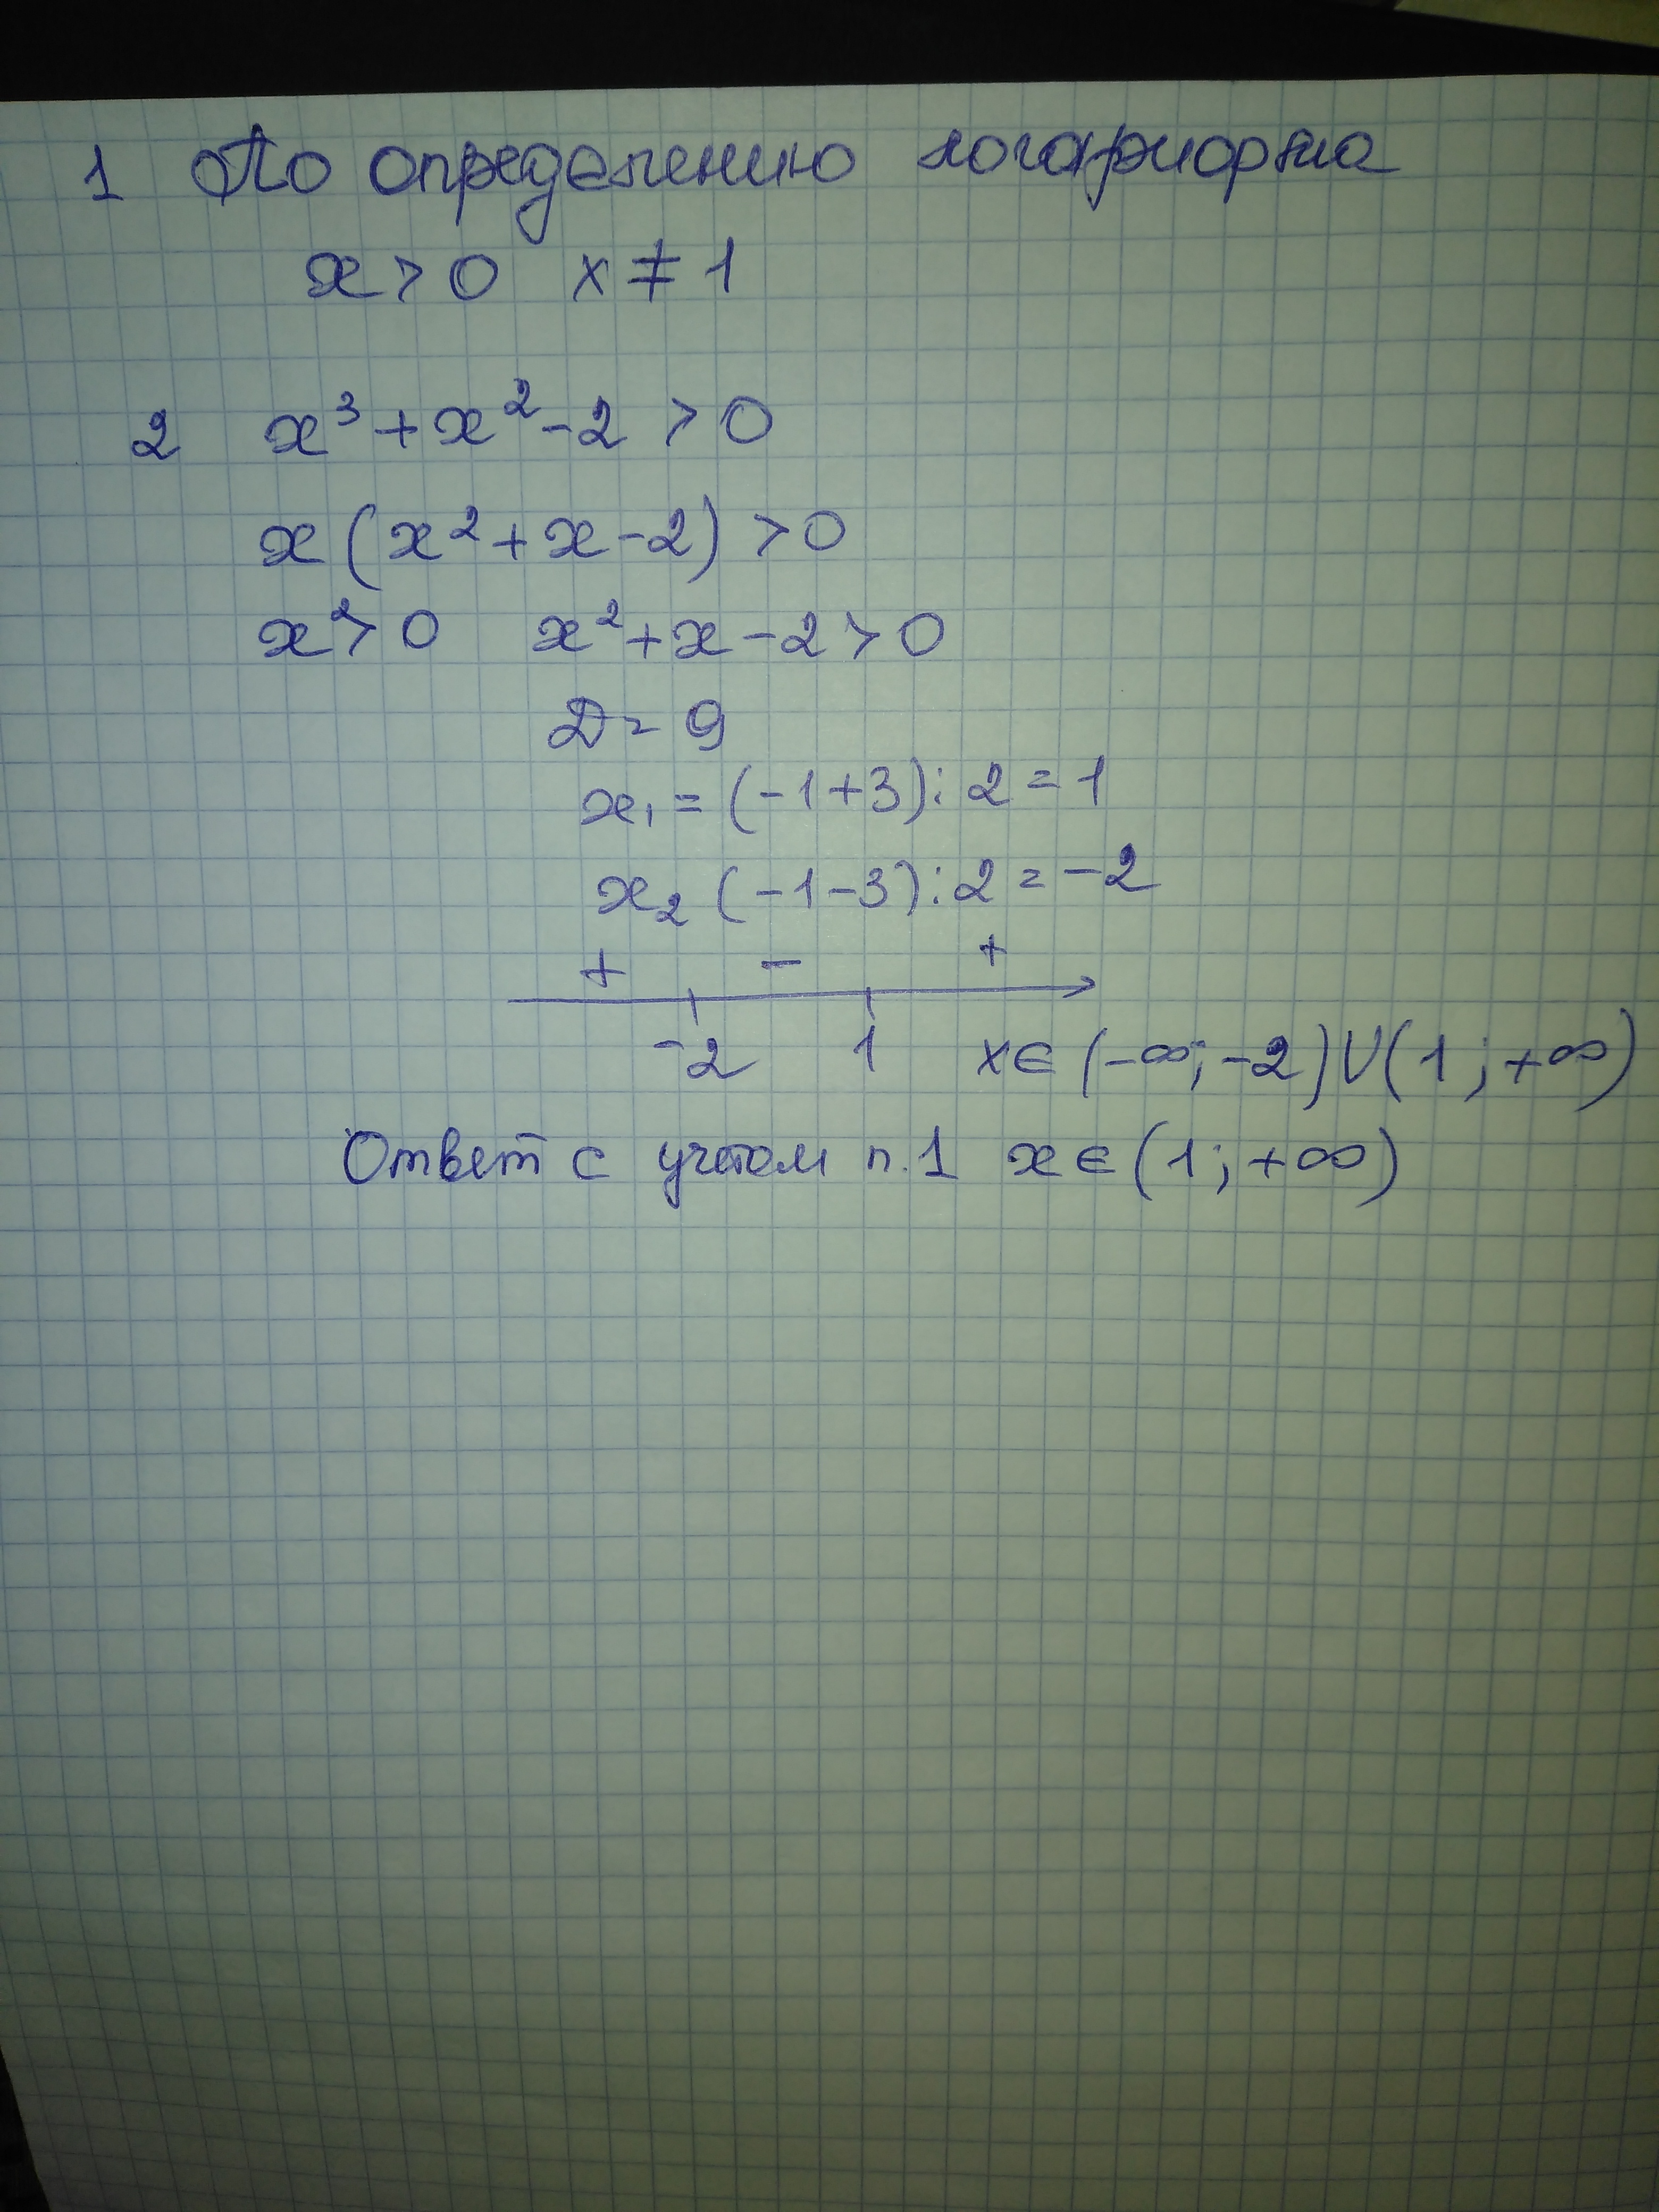 1 По определению логарифма
x > 0 x ≠ 1
2 x³ + x² - 2 > 0
x (x² + x - 2) > 0
x² > 0 x² + x - 2 > 0
D = 9
x₁ = (-1+3) : 2 = 1
x₂ (-1-3) : 2 = -2
+ - +
-2 1 x ∈ (-∞; -2) ∪ (1; +∞)
Ответ с учетом п.1 x ∈ (1; +∞)